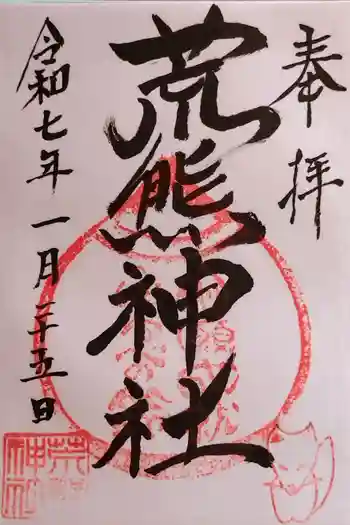 奉拝
荒熊神社
令和七年一月二十五日
荒熊
神社